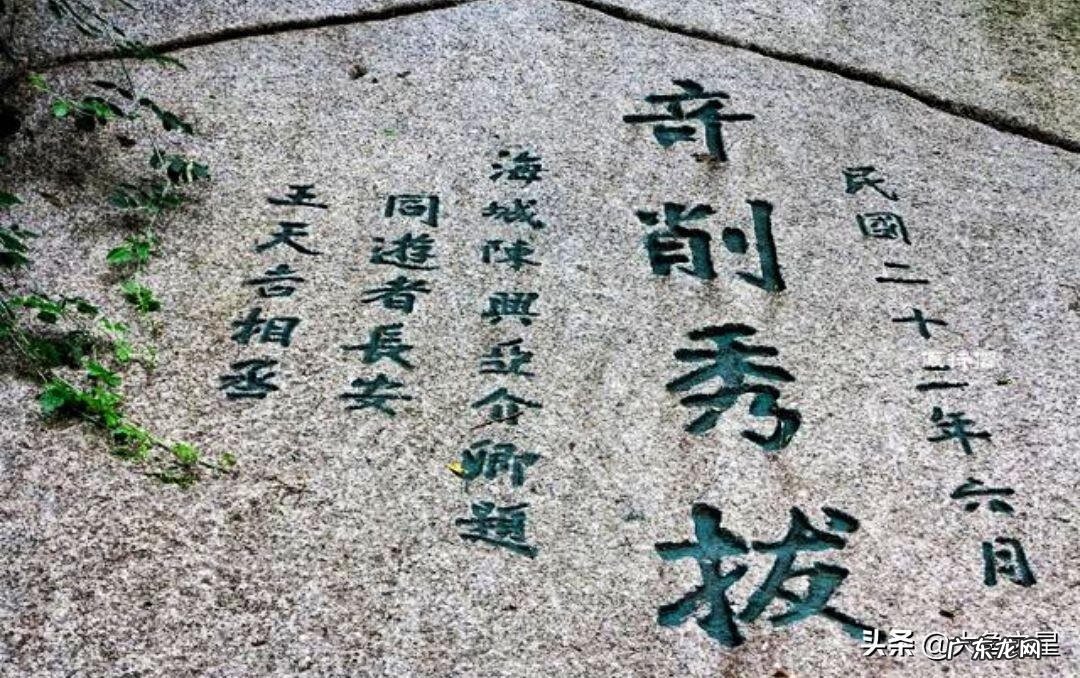 民國二十二年六月
奇削秀拔
海城陳興亞介卿題
同遊者長安
王天吉相丞
头条 @广东龙网